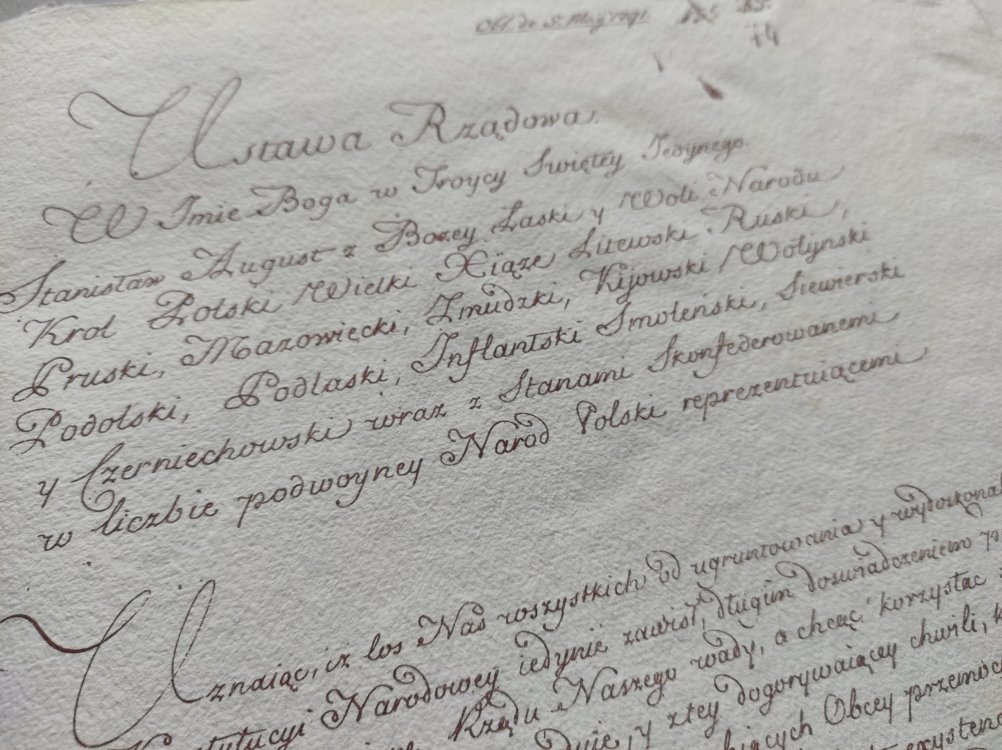 Obl. de 5. Maij 1791.
Ustawa Rządowa.
W Imie Boga w Troycy Swiętey Jedynego.
Stanisław August z Bożey Łaski y Woli Narodu
Krol Polski Wielki Xiąże Litewski Ruski,
Pruski, Mazowiecki, Zmudzki, Kijowski, Wołynski
Podolski, Podlaski, Inflantski Smoleński, Siewierski
y Czerniechowski wraz z Stanami Skonfederowanemi
w liczbie podwoyney Naród Polski reprezentuiącemi
Uznaiąc, iz los Nas wszystkich od ugruntowania y wydoskonal
Konstytucyi Narodowey iedynie zawisł, długim doswiadczeniem
Rządu Naszego wady, a chcąc korzystac
y z tey dogorywaiącey chwili,
Obcey przemoc